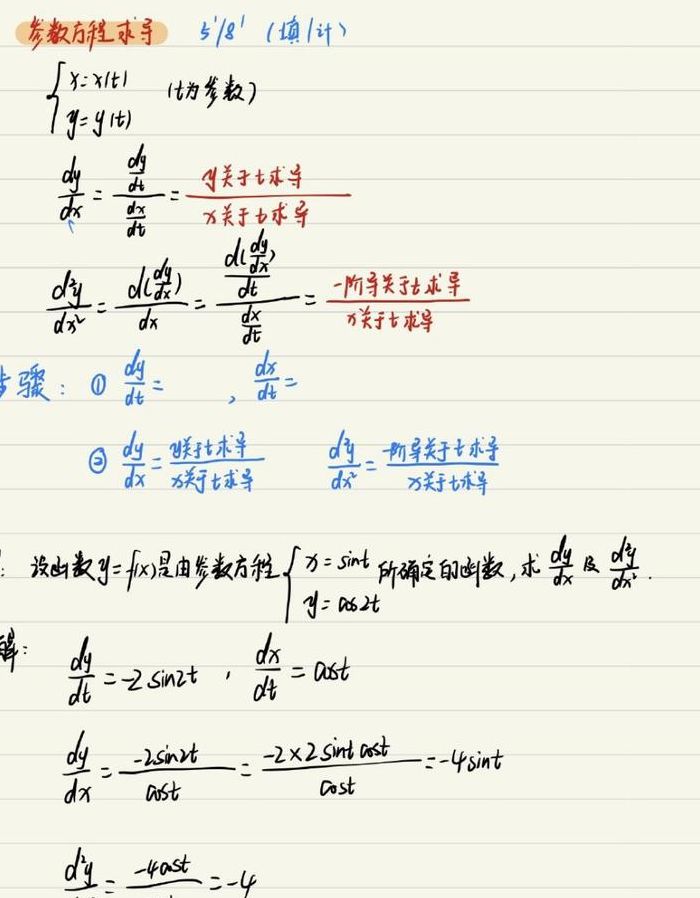 参数方程求导 5'/8' (填/计)
{ x=x(t) (t为参数)
y=y(t)
dy/dx = (dy/dt)/(dx/dt) = y关于t求导/x关于t求导
d²y/dx² = d(dy/dx)/dx = (d(dy/dx)/dt)/(dx/dt) = 一阶导关于t求导/x关于t求导
步骤: ① dy/dt = , dx/dt =
② dy/dx = y关于t求导/x关于t求导 d²y/dx² = 一阶导关于t求导/x关于t求导
: 设函数y=f(x)是由参数方程 { x=sint 所确定的函数,求 dy/dx 及 d²y/dx².
y=cos2t
解:
dy/dt = -2sin2t , dx/dt = cost
dy/dx = -2sin2t/cost = -2×2sintcost/cost = -4sint
d²y = -4cost = -4